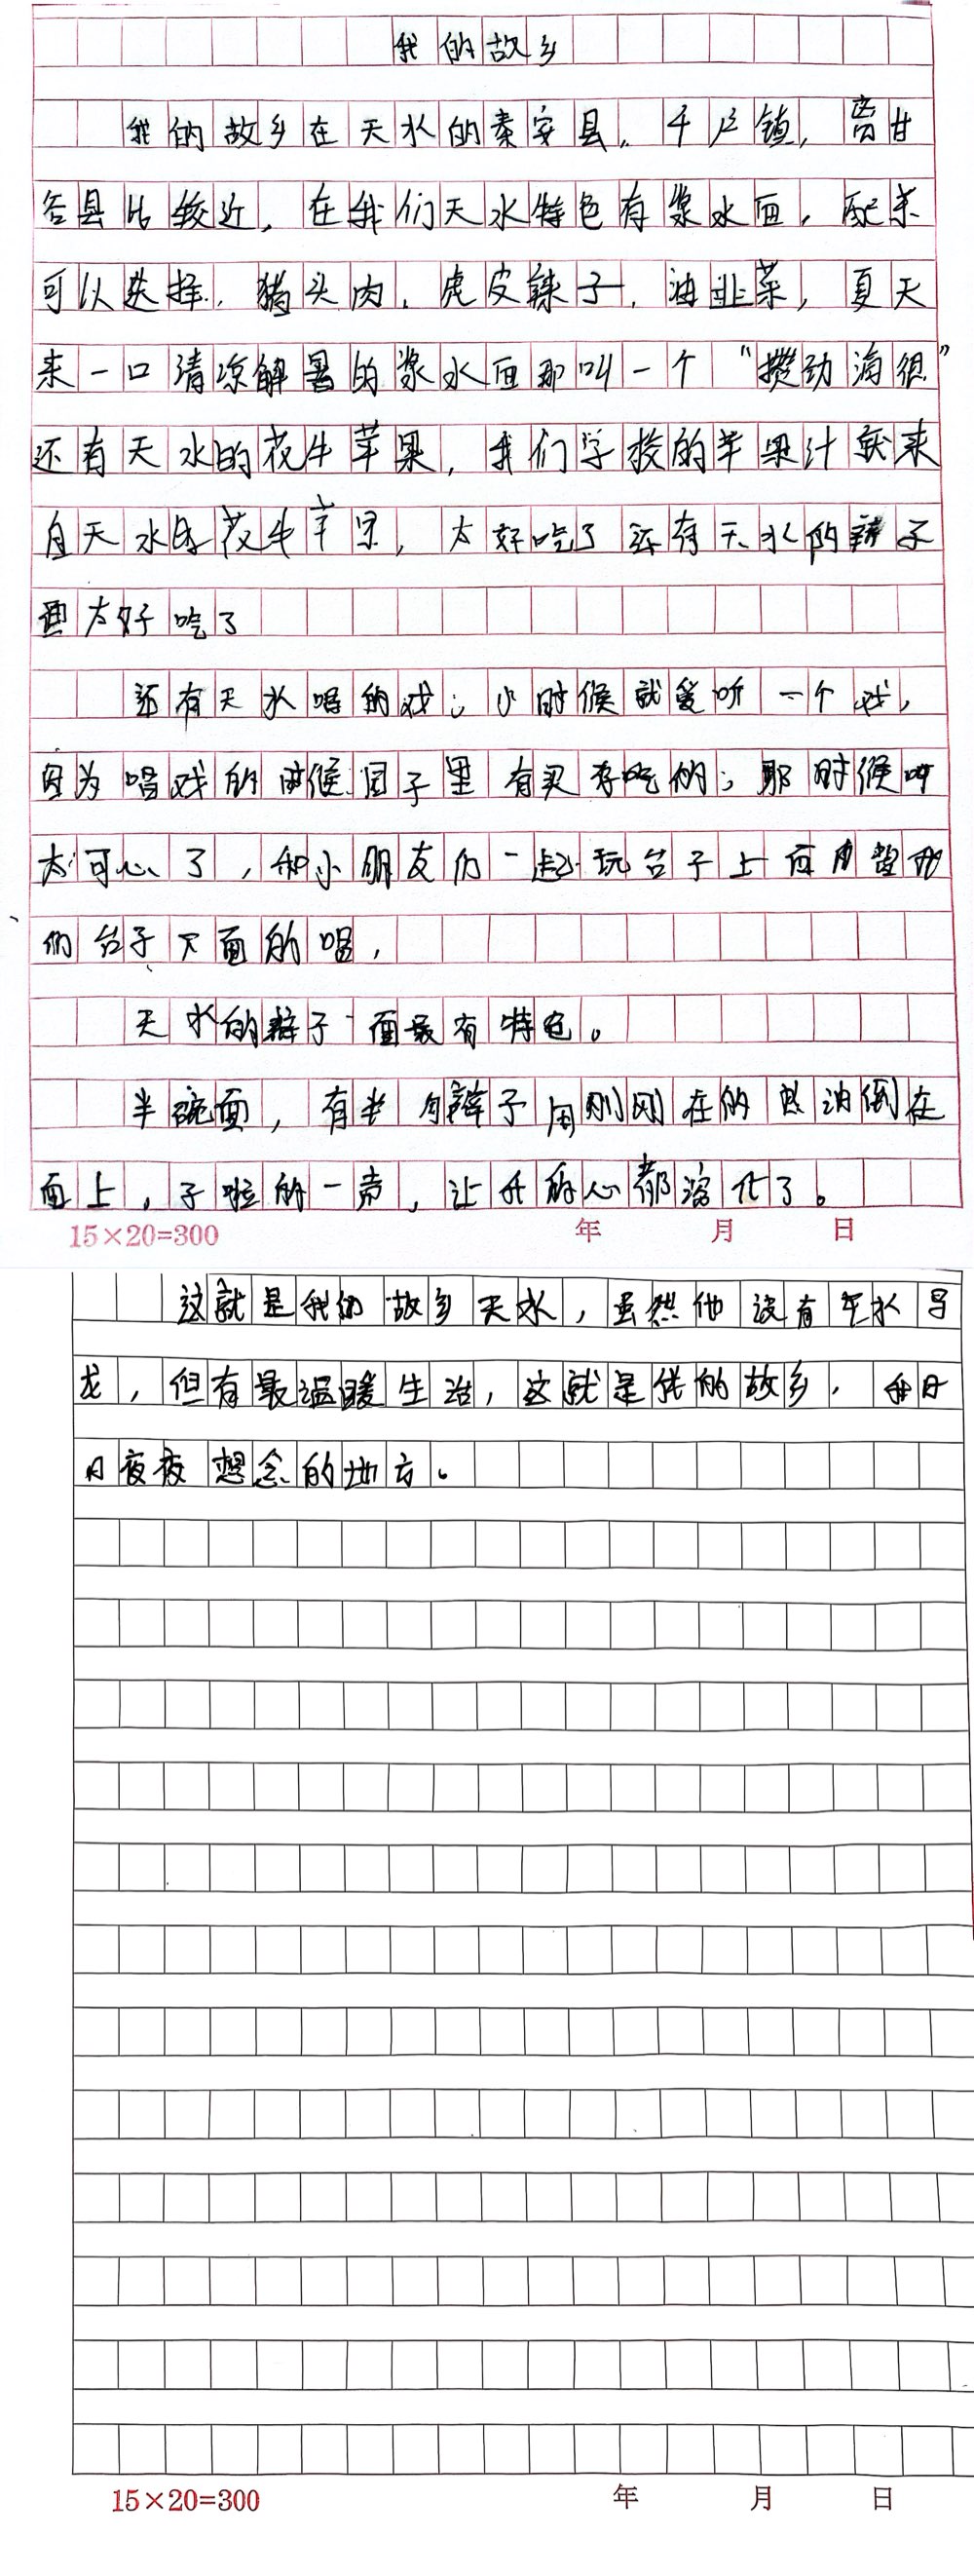 我的故乡
我的故乡在天水的秦安县,千户镇,离甘
谷县比较近,在我们天水特色有浆水面,配菜
可以选择,猪头肉,虎皮辣子,油韭菜,夏天
来一口清凉解暑的浆水面那叫一个“攒劲滴很”
还有天水的花牛苹果,我们学校的苹果汁就来
自天水的花牛苹果,太好吃了还有天水的辣子
面太好吃了
还有天水唱的戏;小时候就爱听一个戏,
因为唱戏的时候园子里有买好吃的;那时候叫
太可心了,和小朋友们一起玩台子上
们台子下面的唱,
天水的辣子面最有特色。
半碗面,有半勺辣子用刚刚在的热油倒在
面上,子啦的一声,让我的心都溶化了。
这就是我的故乡天水,虽然他没有车水
龙,但有最温暖生活,这就是我的故乡,每日
日夜夜想念的地方。
15×20=300 年 月 日
15×20=300 年 月 日